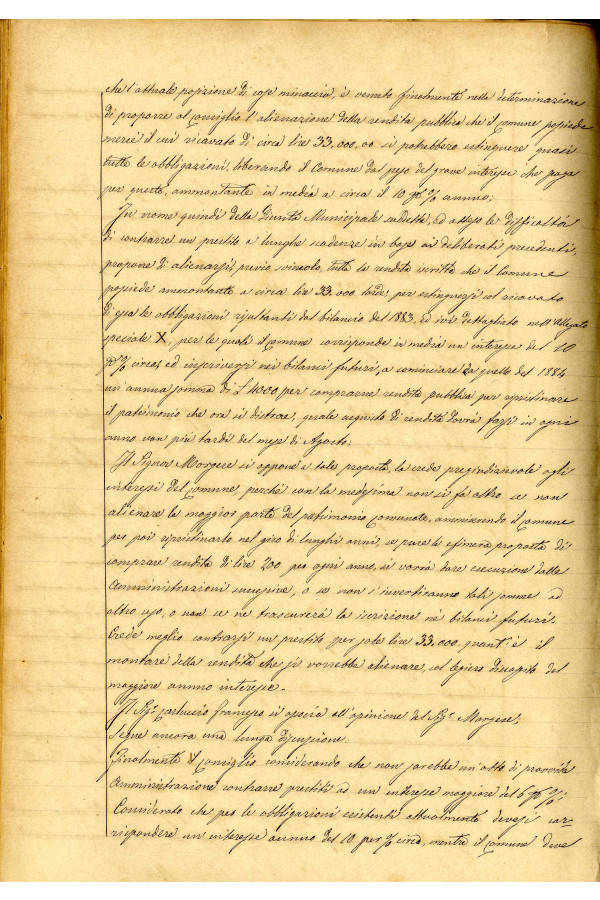 che l'attuale posizione di cose minaccia, è venuta finalmente nella determinazione
di proporre al Consiglio l'alienazione della rendita pubblica che il Comune possiede
mercè il cui ricavato di circa lire 33,000,00 si potrebbero estinguere quasi
tutte le obbligazioni, liberando il Comune dal peso del grave interesse che paga
per queste, ammontante in media a circa il 10 p% annuo;
In nome quindi della Giunta Municipale suddetta, ed attese le difficoltà
di contrarre un prestito a lunghe scadenze in base ai deliberati precedenti,
propone di alienarsi, previo svincolo, tutta la rendita scritta che il Comune
possiede ammontante a circa lire 33,000 lorde, per estinguersi col ricavato
di essa le obbligazioni risultanti dal bilancio del 1883, ed ivi dettagliate nell'Allegato
speciale X, per le quali il Comune corrisponde in media un interesse del 10
p% circa, ed inscriversi nei bilanci futuri, a cominciare da quello del 1884
un'annua somma di £ 4000 per comprarne rendita pubblica per ripristinare
il patrimonio che ora si distrae, quale acquisto di rendita dovrà farsi in ogni
anno non più tardi del mese di Agosto;
Il Signor Morgese si oppone a tale proposta, la crede pregiudizievole agli
interessi del Comune, perchè con la medesima non si fa altro se non
alienare la maggior parte del patrimonio Comunale, ammiserendo il Comune
per poi ripristinarlo nel giro di lunghi anni, se pure la efimera proposta di
comprare rendita di lire 200 per ogni anno, si vorrà dare esecuzione dalle
Amministrazioni successive, o se non s'invertiranno tali somme ad
altro uso, o non se ne trascurerà la iscrizione nè bilanci futuri.
Crede meglio contrarsi un prestito per sole lire 33,000, quant'è il
montare della rendita che si vorrebbe alienare, col legiero discapito del
maggiore annuo interesse.
Il Sigr. Carluccio Francesco si associa all'opinione del Sigr. Morgese;
Segue ancora una lunga discussione.
Finalmente il Consiglio considerando che non sarebbe un'atto di provvida
Amministrazione contrarre prestiti ad un interesse maggiore del 6 p%;
Considerato che per le obbligazioni esistenti attualmente devesi cor-
rispondere un interesse annuo del 10 per % circa, mentre il Comune deve